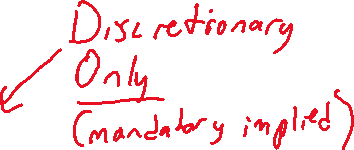 Discretionary
Only
(mandatory implied)